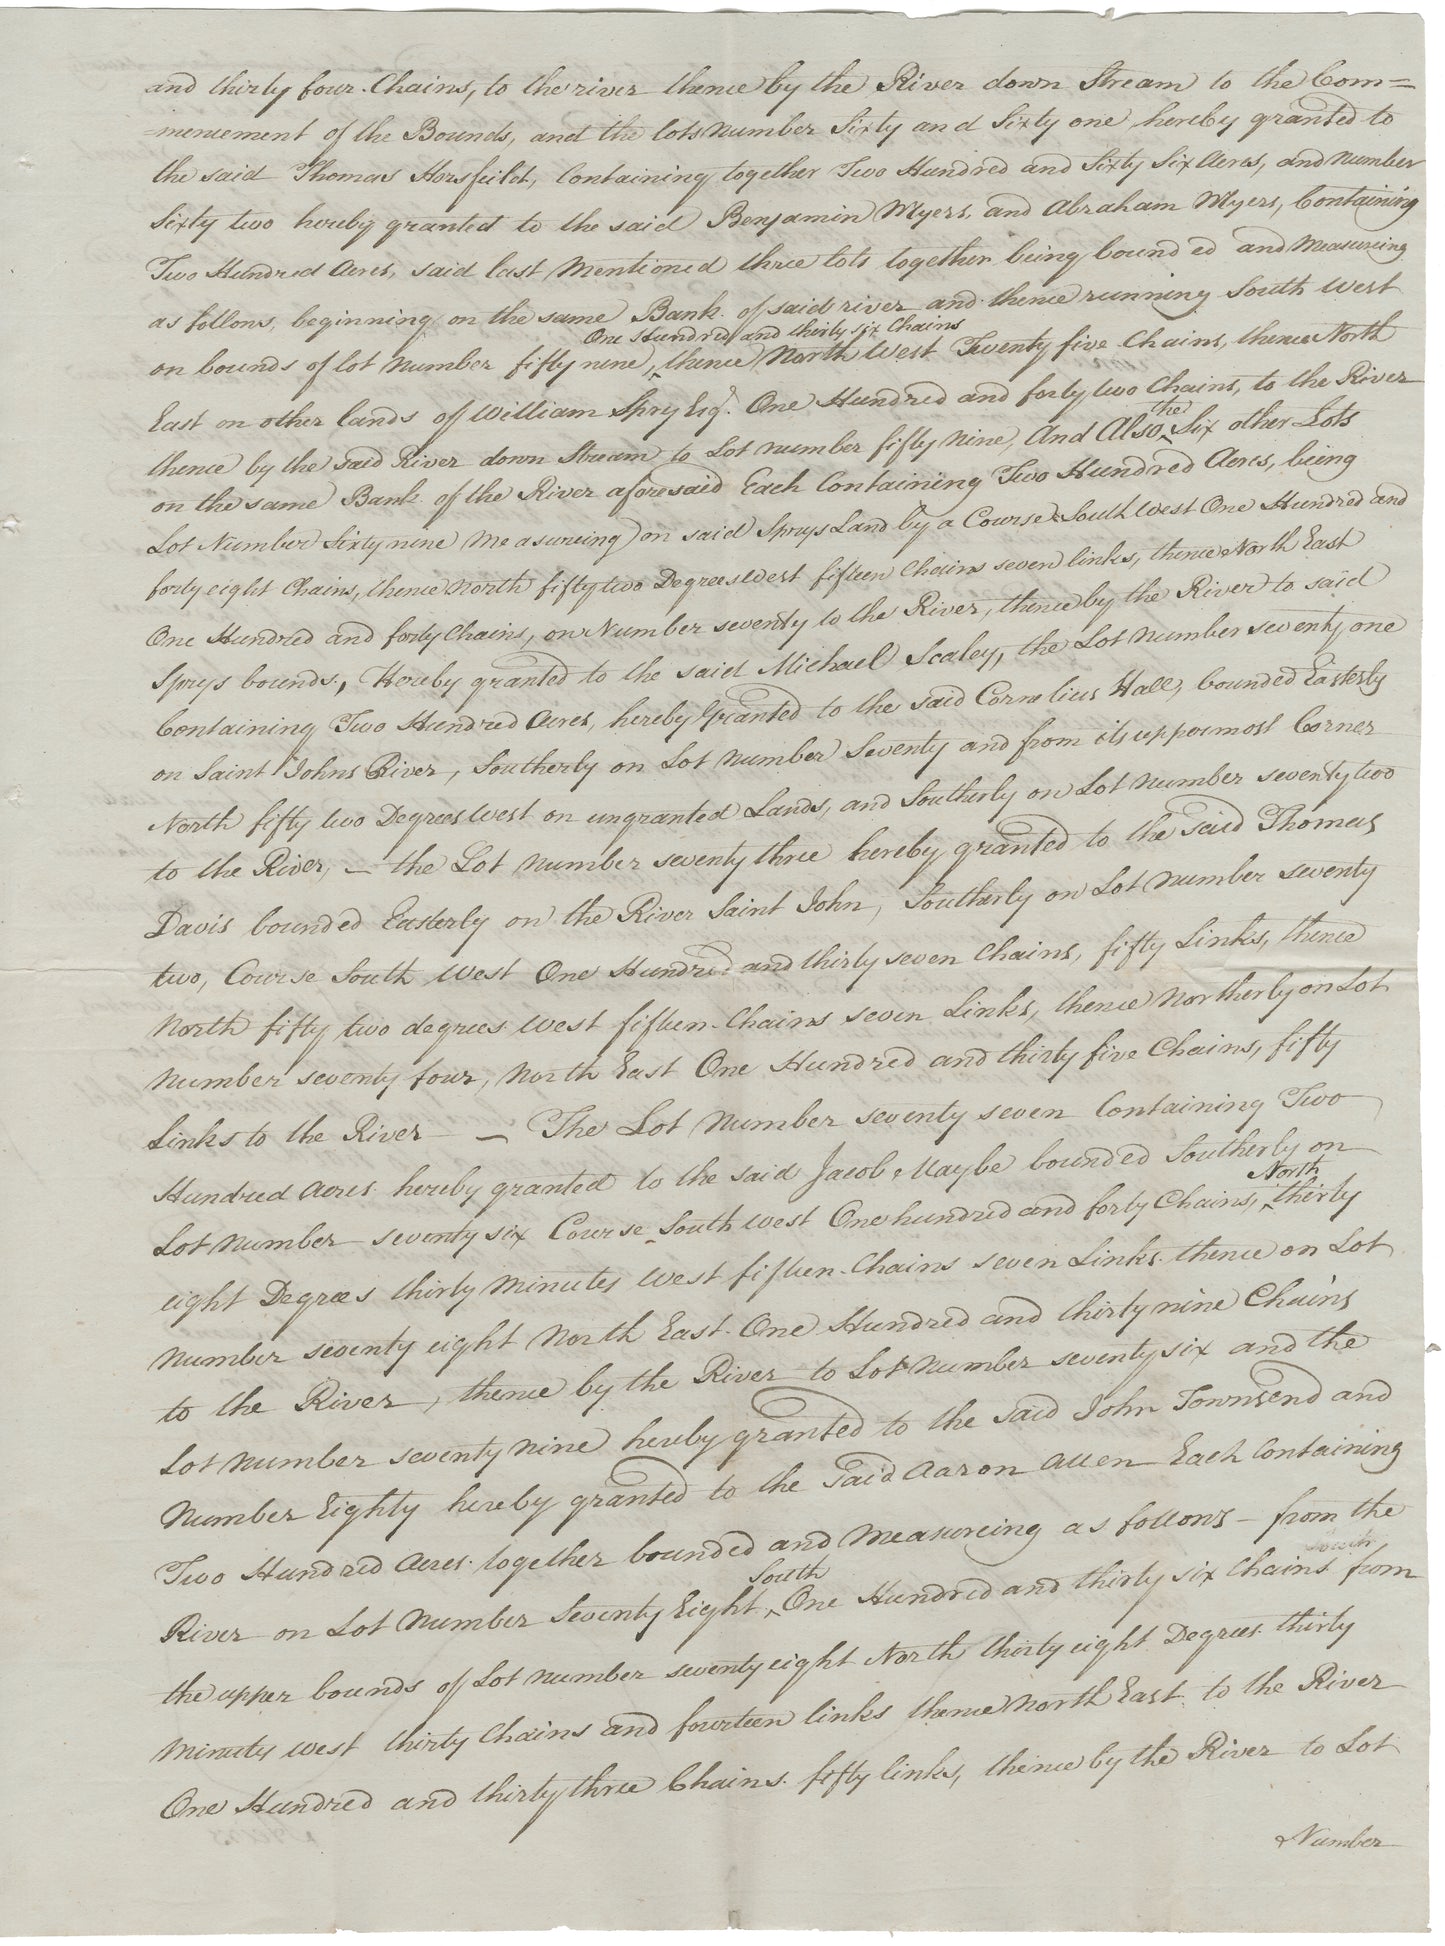 and thirty four Chains, to the river thence by the River down Stream to the Com=
=mencement of the Bounds, and the lots number Sixty and Sixty one, hereby granted to
the said Thomas Horsfeild, Containing together Two Hundred and Sixty Six Acres, and number
Sixty two hereby granted to the said Benjamin Myers, and Abraham Myers, Containing
Two Hundred Acres, said last Mentioned three lots together being bounded and Measureing
as follows, beginning on the same Bank of said river and thence running South West
One Hundred and thirty six Chains
on bounds of lot number fifty nine, ‸ thence North West Twenty five Chains, thence North
East on other lands of William Spry Esqr. One Hundred and forty two Chains, to the River
the
thence by the said River down Stream to Lot number fifty nine, And Also ‸ Six other Lots
on the same Bank of the River aforesaid Each Containing Two Hundred Acres, being
Lot Number Sixty nine Measureing on said Sprys Land by a Course South West One Hundred and
forty eight Chains, thence North fifty two Degrees West fifteen Chains seven links, thence North East
One Hundred and forty Chains, on Number seventy to the River, thence by the River to said
Sprys bounds, Hereby granted to the said Michael Scaley, the Lot Number seventy one
Containing Two Hundred Acres, hereby Granted to the said Cornelius Hall, bounded Easterly
on Saint Johns River, Southerly on Lot Number Seventy and from its uppermost Corner
North fifty two Degrees West on ungranted Lands, and Southerly on Lot Number seventy two
to the River, — the Lot Number seventy three hereby granted to the said Thomas
Davis bounded Easterly on the River Saint John, Southerly on Lot Number seventy
two, Course South West One Hundred and thirty seven Chains, fifty Links, thence
North fifty two degrees West fifteen Chains seven Links, thence Northerly on Lot
Number seventy four, North East One Hundred and thirty five Chains, fifty
Links to the River — The Lot Number seventy seven Containing Two
Hundred Acres hereby granted to the said Jacob Maybe bounded Southerly on
North
Lot Number seventy six Course South West One hundred and forty Chains, ‸ thirty
eight Degrees thirty Minutes West fifteen Chains seven Links thence on Lot
Number seventy eight North East One Hundred and thirty nine Chains
to the River, thence by the River to Lot Number seventy six and the
Lot Number seventy nine hereby granted to the said John Townsend and
Number Eighty hereby granted to the said Aaron Allen Each Containing
Two Hundred Acres together bounded and Measureing as follows — from the
South South
River on Lot Number Seventy Eight, ‸ One Hundred and thirty six Chains from
the upper bounds of Lot number seventy eight North thirty eight Degrees thirty
Minuty West thirty Chains and fourteen links thence North East to the River
One Hundred and thirty three Chains fifty links, thence by the River to Lot
Number